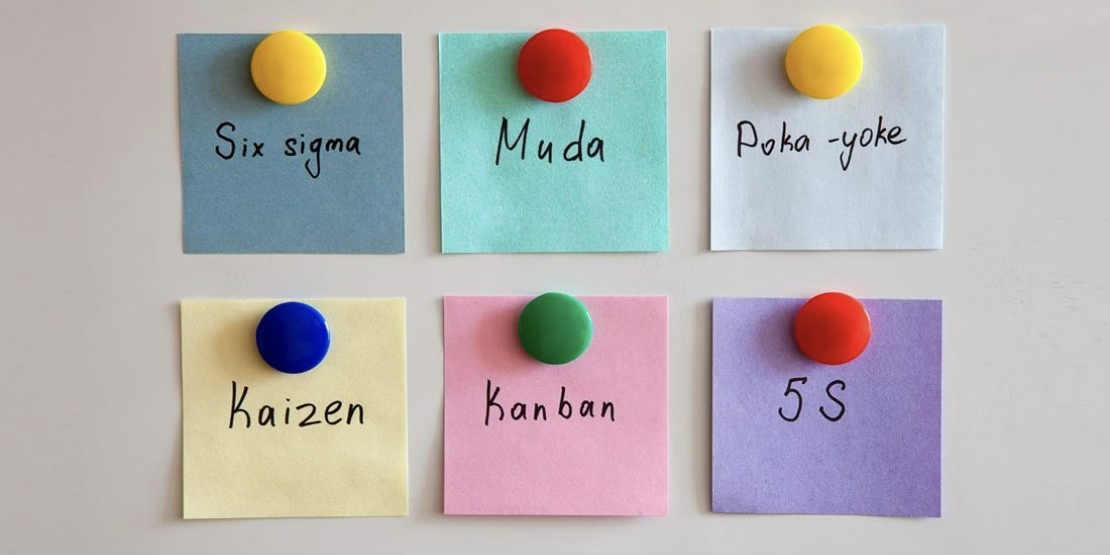 Six sigma
Muda
Poka -yoke
Kaizen
Kanban
5S